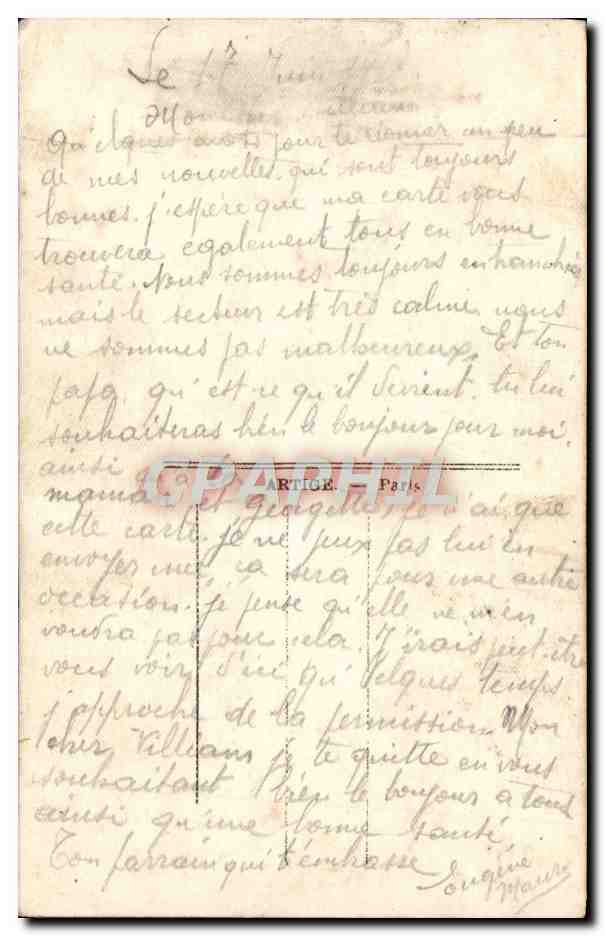 Le 17 Juin
Mon
Quelques mots pour te donner un peu
de mes nouvelles qui sont toujours
bonnes. j'espere que ma carte vous
trouvera egalement tous en bonne
santé. Nous sommes toujours en tranchée
mais le secteur est très calme nous
ne sommes pas malheureux. Et ton
papa qu'est ce qu'il devient. tu lui
souhaiteras bien le bonjour pour moi.
ainsi
CPARAMA
ARTIGE. — Paris
mama et Georgette. je n'ai que
cette carte. je ne peux pas lui en
envoyer une, ca sera pour une autre
occasion. j'pense qu'elle ne m'en
voudra pas pour cela. J'irais peut-être
vous voir d'ici qu'elques temps
j'approche de la permission. Mon
cher William je te quitte en vous
souhaitant bien le bonjour a tous
ainsi qu'une bonne santé
Ton parrain qui t'embrasse Eugène